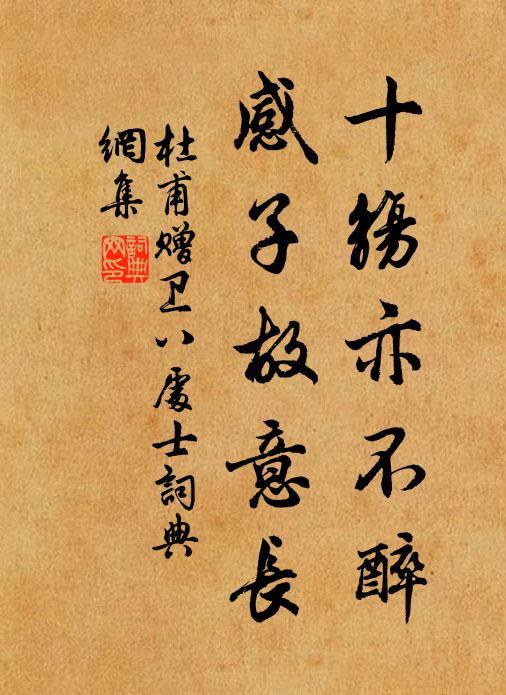 十觴亦不醉
感子故意長
杜甫赠卫八處士詞典
網集
詞典
网印